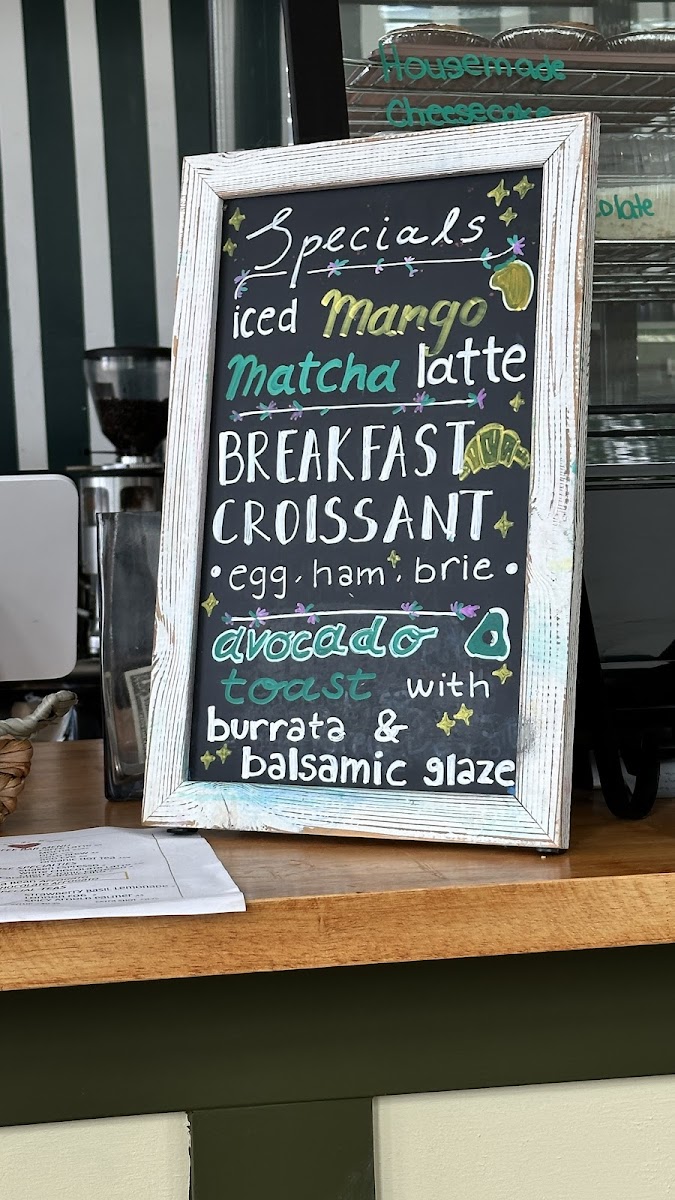 Housemade
Cheesecake
Specials
iced Mango
Matcha latte
BREAKFAST
CROISSANT
• egg · ham · brie •
avocado
toast with
burrata &
balsamic glaze
Strawberry Basil Lemonade